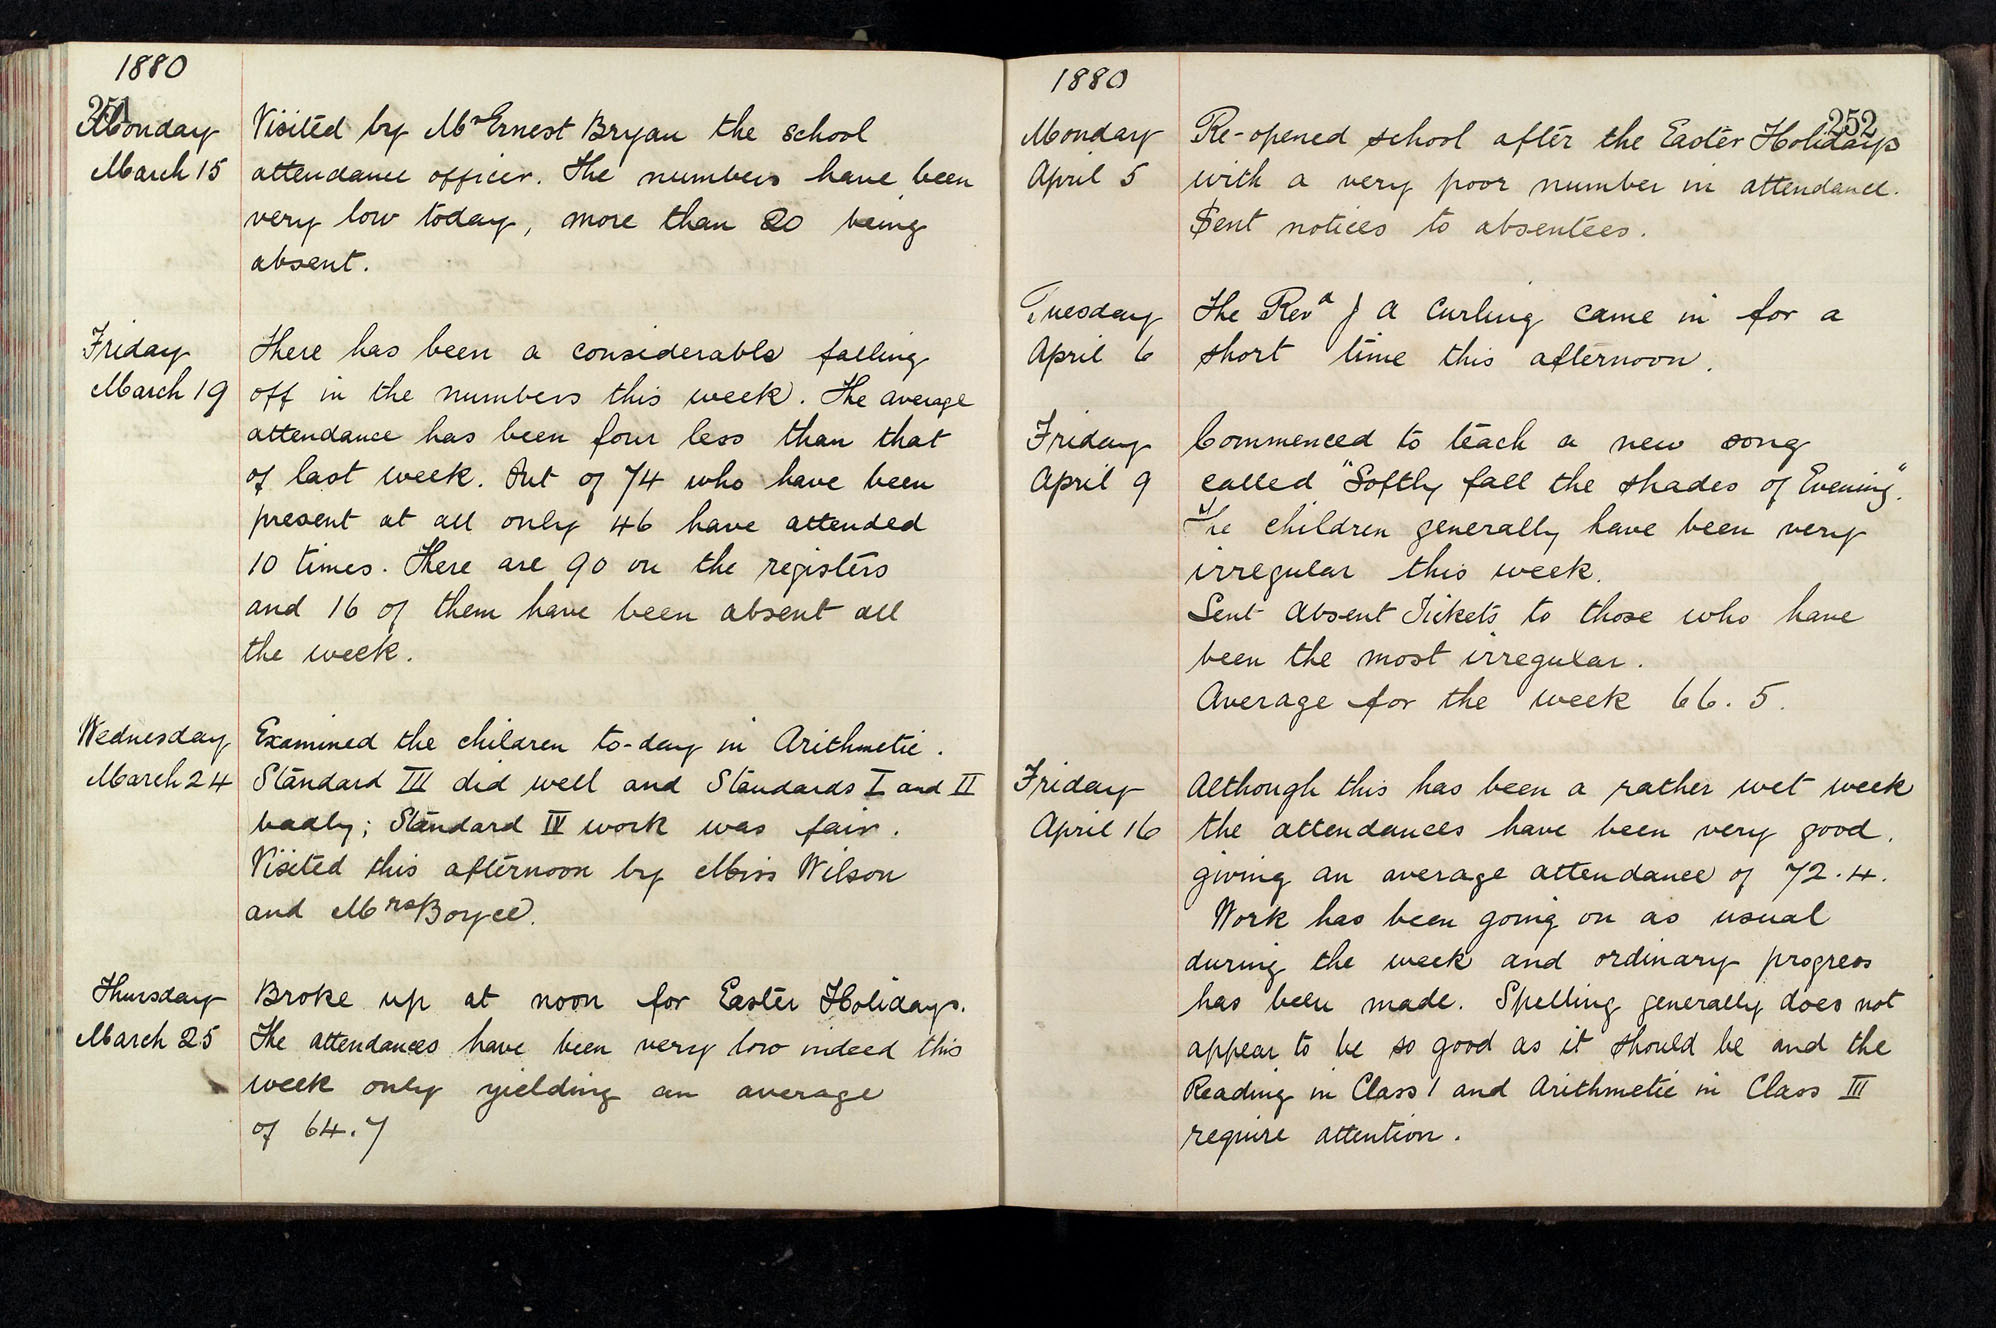 1880
251
Monday
March 15
Visited by Mr Ernest Bryan the school
attendance officer. The numbers have been
very low today, more than 20 being
absent.
Friday
March 19
There has been a considerable falling
off in the numbers this week. The average
attendance has been four less than that
of last week. Out of 74 who have been
present at all only 46 have attended
10 times. There are 90 on the registers
and 16 of them have been absent all
the week.
Wednesday
March 24
Examined the children to-day in Arithmetic.
Standard III did well and Standards I and II
badly; Standard IV work was fair.
Visited this afternoon by Miss Wilson
and Mrs Boyce.
Thursday
March 25
Broke up at noon for Easter Holidays.
The attendances have been very low indeed this
week only yielding an average
of 64.7
1880
252
Monday
April 5
Re-opened school after the Easter Holidays
with a very poor number in attendance.
Sent notices to absentees.
Tuesday
April 6
The Revd J A Curling came in for a
short time this afternoon.
Friday
April 9
Commenced to teach a new song
called "Softly fall the shades of Evening".
The children generally have been very
irregular this week.
Sent Absent Tickets to those who have
been the most irregular.
Average for the week 66.5.
Friday
April 16
Although this has been a rather wet week
the attendances have been very good,
giving an average attendance of 72.4.
Work has been going on as usual
during the week and ordinary progress
has been made. Spelling generally does not
appear to be so good as it should be and the
Reading in Class I and Arithmetic in Class III
require attention.